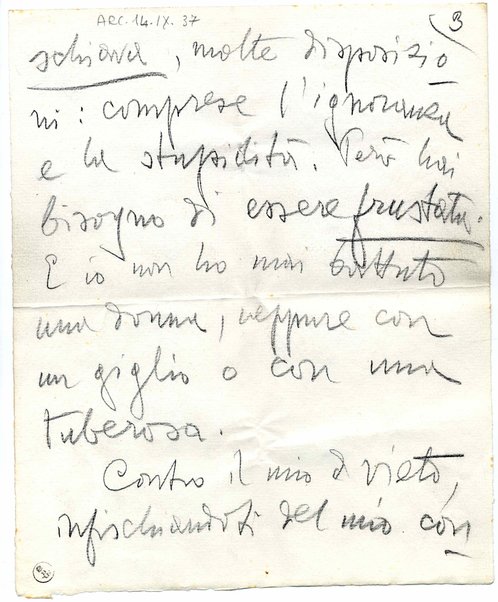 ARC. 14. IX. 37
3
schiava, molte disposizio
ni: comprese l'ignoranza
e la stupidità. Però hai
bisogno di essere frustata.
E io non ho mai battuto
una donna, neppure con
un giglio o con una
tuberosa.
Contro il mio divieto,
infischiandoti del mio con